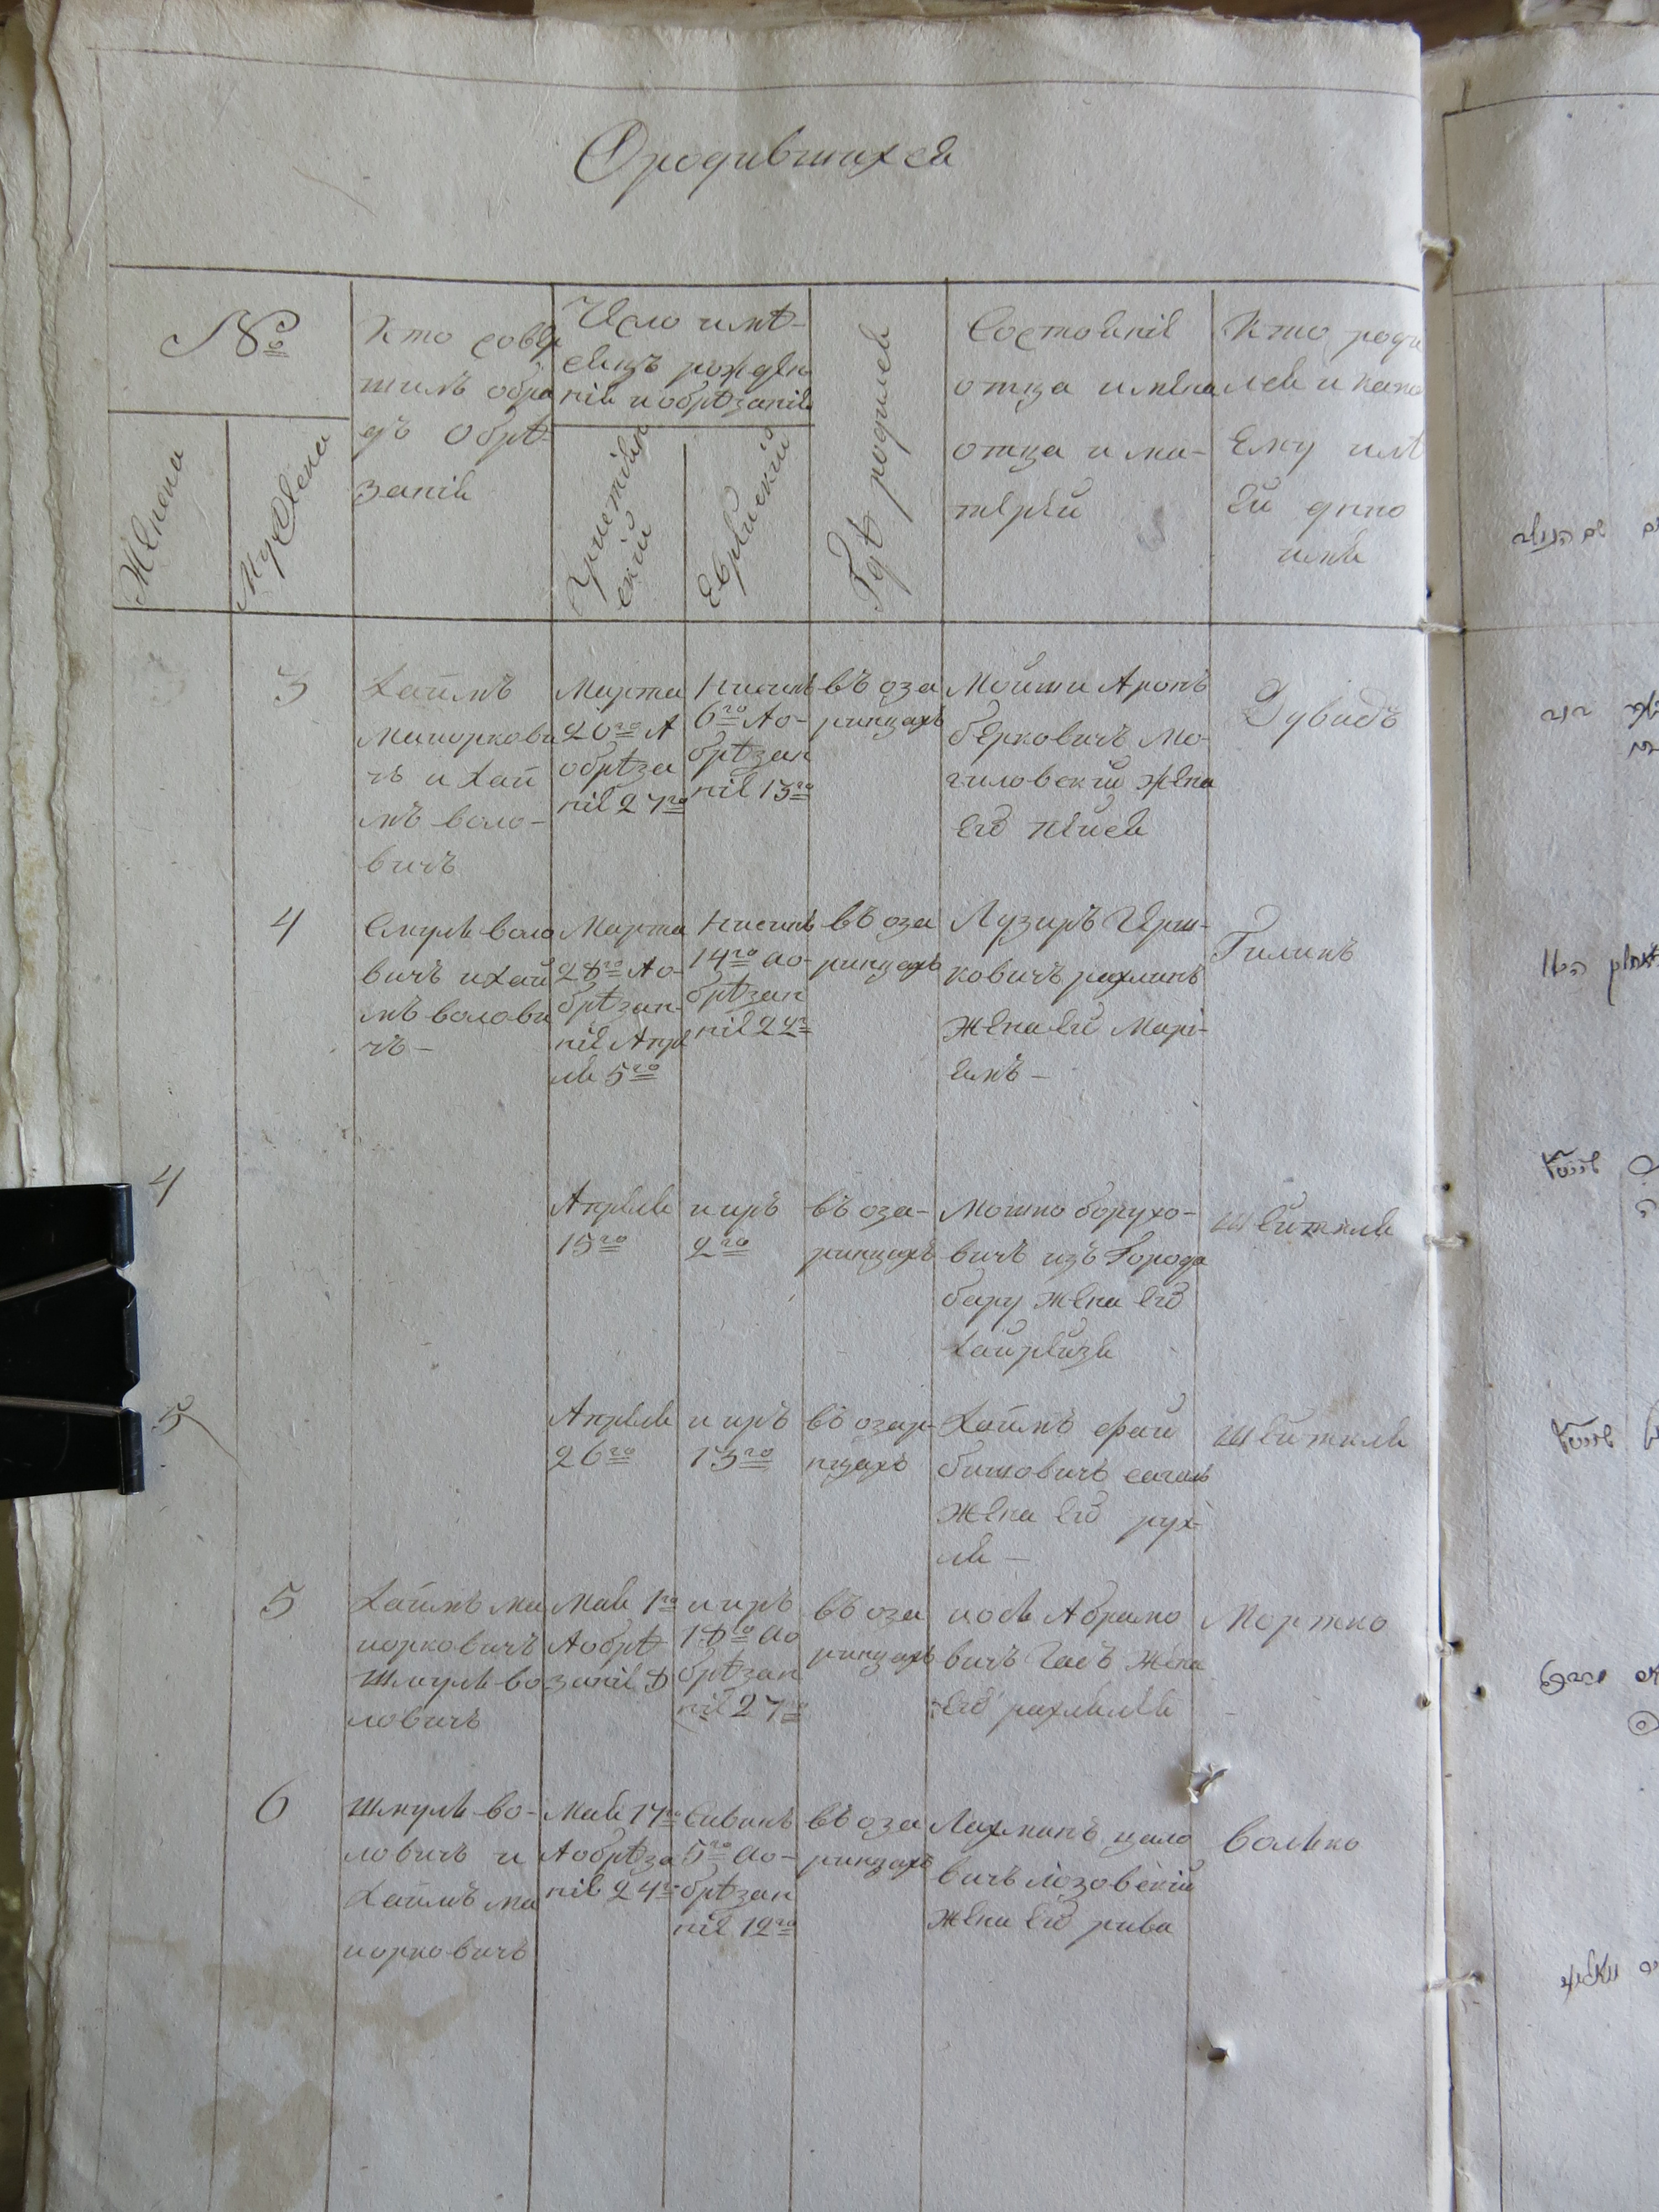 О родившихся
№
Женска
Мужеска
Кто совер
шилъ обра
дъ обрѣ-
занія
Число и мѣ-
сяцъ рожден
нія и обрѣзанія
Христіан
скій
Еврейскій
Гдѣ родился
Состояніе
отца имена
отца и ма-
терей
Кто роди
лся и како
ему или
ей дано
имя
3
Хаимъ
Маиоркови
чъ и Хаи
мъ Воло-
вичъ
Марта
20го А
обрѣза
ніе 27го
Нисинъ
6го Ао-
брѣзан
ніе 13го
въ оза
ринцахъ
Мойши Аронъ
Берковичъ Мо-
гиловскій жена
его
Дувидъ
4
Смуль Воло
вичъ и Хаи
мъ Волови
чъ -
Марта
28го Ао-
брѣзан-
ніе Апре
ля 5го
Нисинъ
14го ао-
брѣзан
ніе
въ оза
ринцахъ
Лузиръ Ирш-
ковичъ рахлинъ
жена ей Марі-
емъ -
Гилинъ
4
Апреля
15го
ииръ
2го
въ оза-
ринцахъ
Мошко Борухо-
вичъ изъ Города
бару жена его
Хайрейзя
Шейткля
5
Апреля
26го
ииръ
13го
въ озар-
ницахъ
Хаимъ Фай
бишовичъ сагаль
жена его рух-
ля -
Шейткля
5
Хаимъ Ма
иорковичъ
Шмуль Во
ловичъ
Мая 1го
Аобрѣ-
заніе 8
ииръ
18го ао
брѣзан
ніе 27го
въ оза
ринцахъ
иось Абрамо
вичъ Гасъ жена
его рахмиля
Мортко
6
Шмуль Во-
ловичъ и
Хаимъ Ма
иорковичъ
Мая 17го
Аобрѣза
ніе 24го
Сиванъ
5го ао-
брѣзан
ніе 12го
въ оза
ринцахъ
Лахманъ цало
вичъ лозовскій
жена его рива
Волько